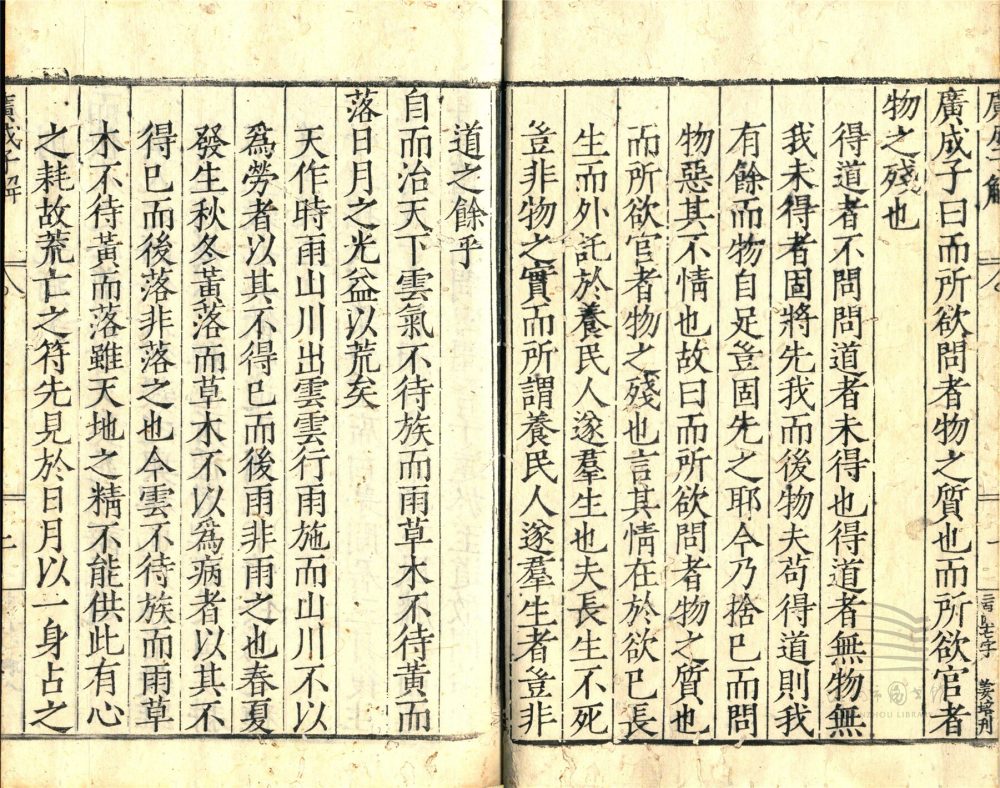 廣成子曰而所欲問者物之質也而所欲官者
物之殘也
得道者不問問道者未得也得道者無物無
我未得者固將先我而後物夫苟得道則我
有餘而物自足豈固先之耶今乃捨已而問
物惡其不情也故曰而所欲問者物之質也
而所欲官者物之殘也言其情在於欲已長
生而外託於養民人遂羣生也夫長生不死
豈非物之實而所謂養民人遂羣生者豈非
道之餘乎
自而治天下雲氣不待族而雨草木不待黃而
落日月之光益以荒矣
天作時雨山川出雲雲行雨施而山川不以
爲勞者以其不得已而後雨非雨之也春夏
發生秋冬黃落而草木不以爲病者以其不
得已而後落非落之也今雲不待族而雨草
木不待黃而落雖天地之精不能供此有心
之耗故荒亡之符先見於日月以一身占之
廣成子解